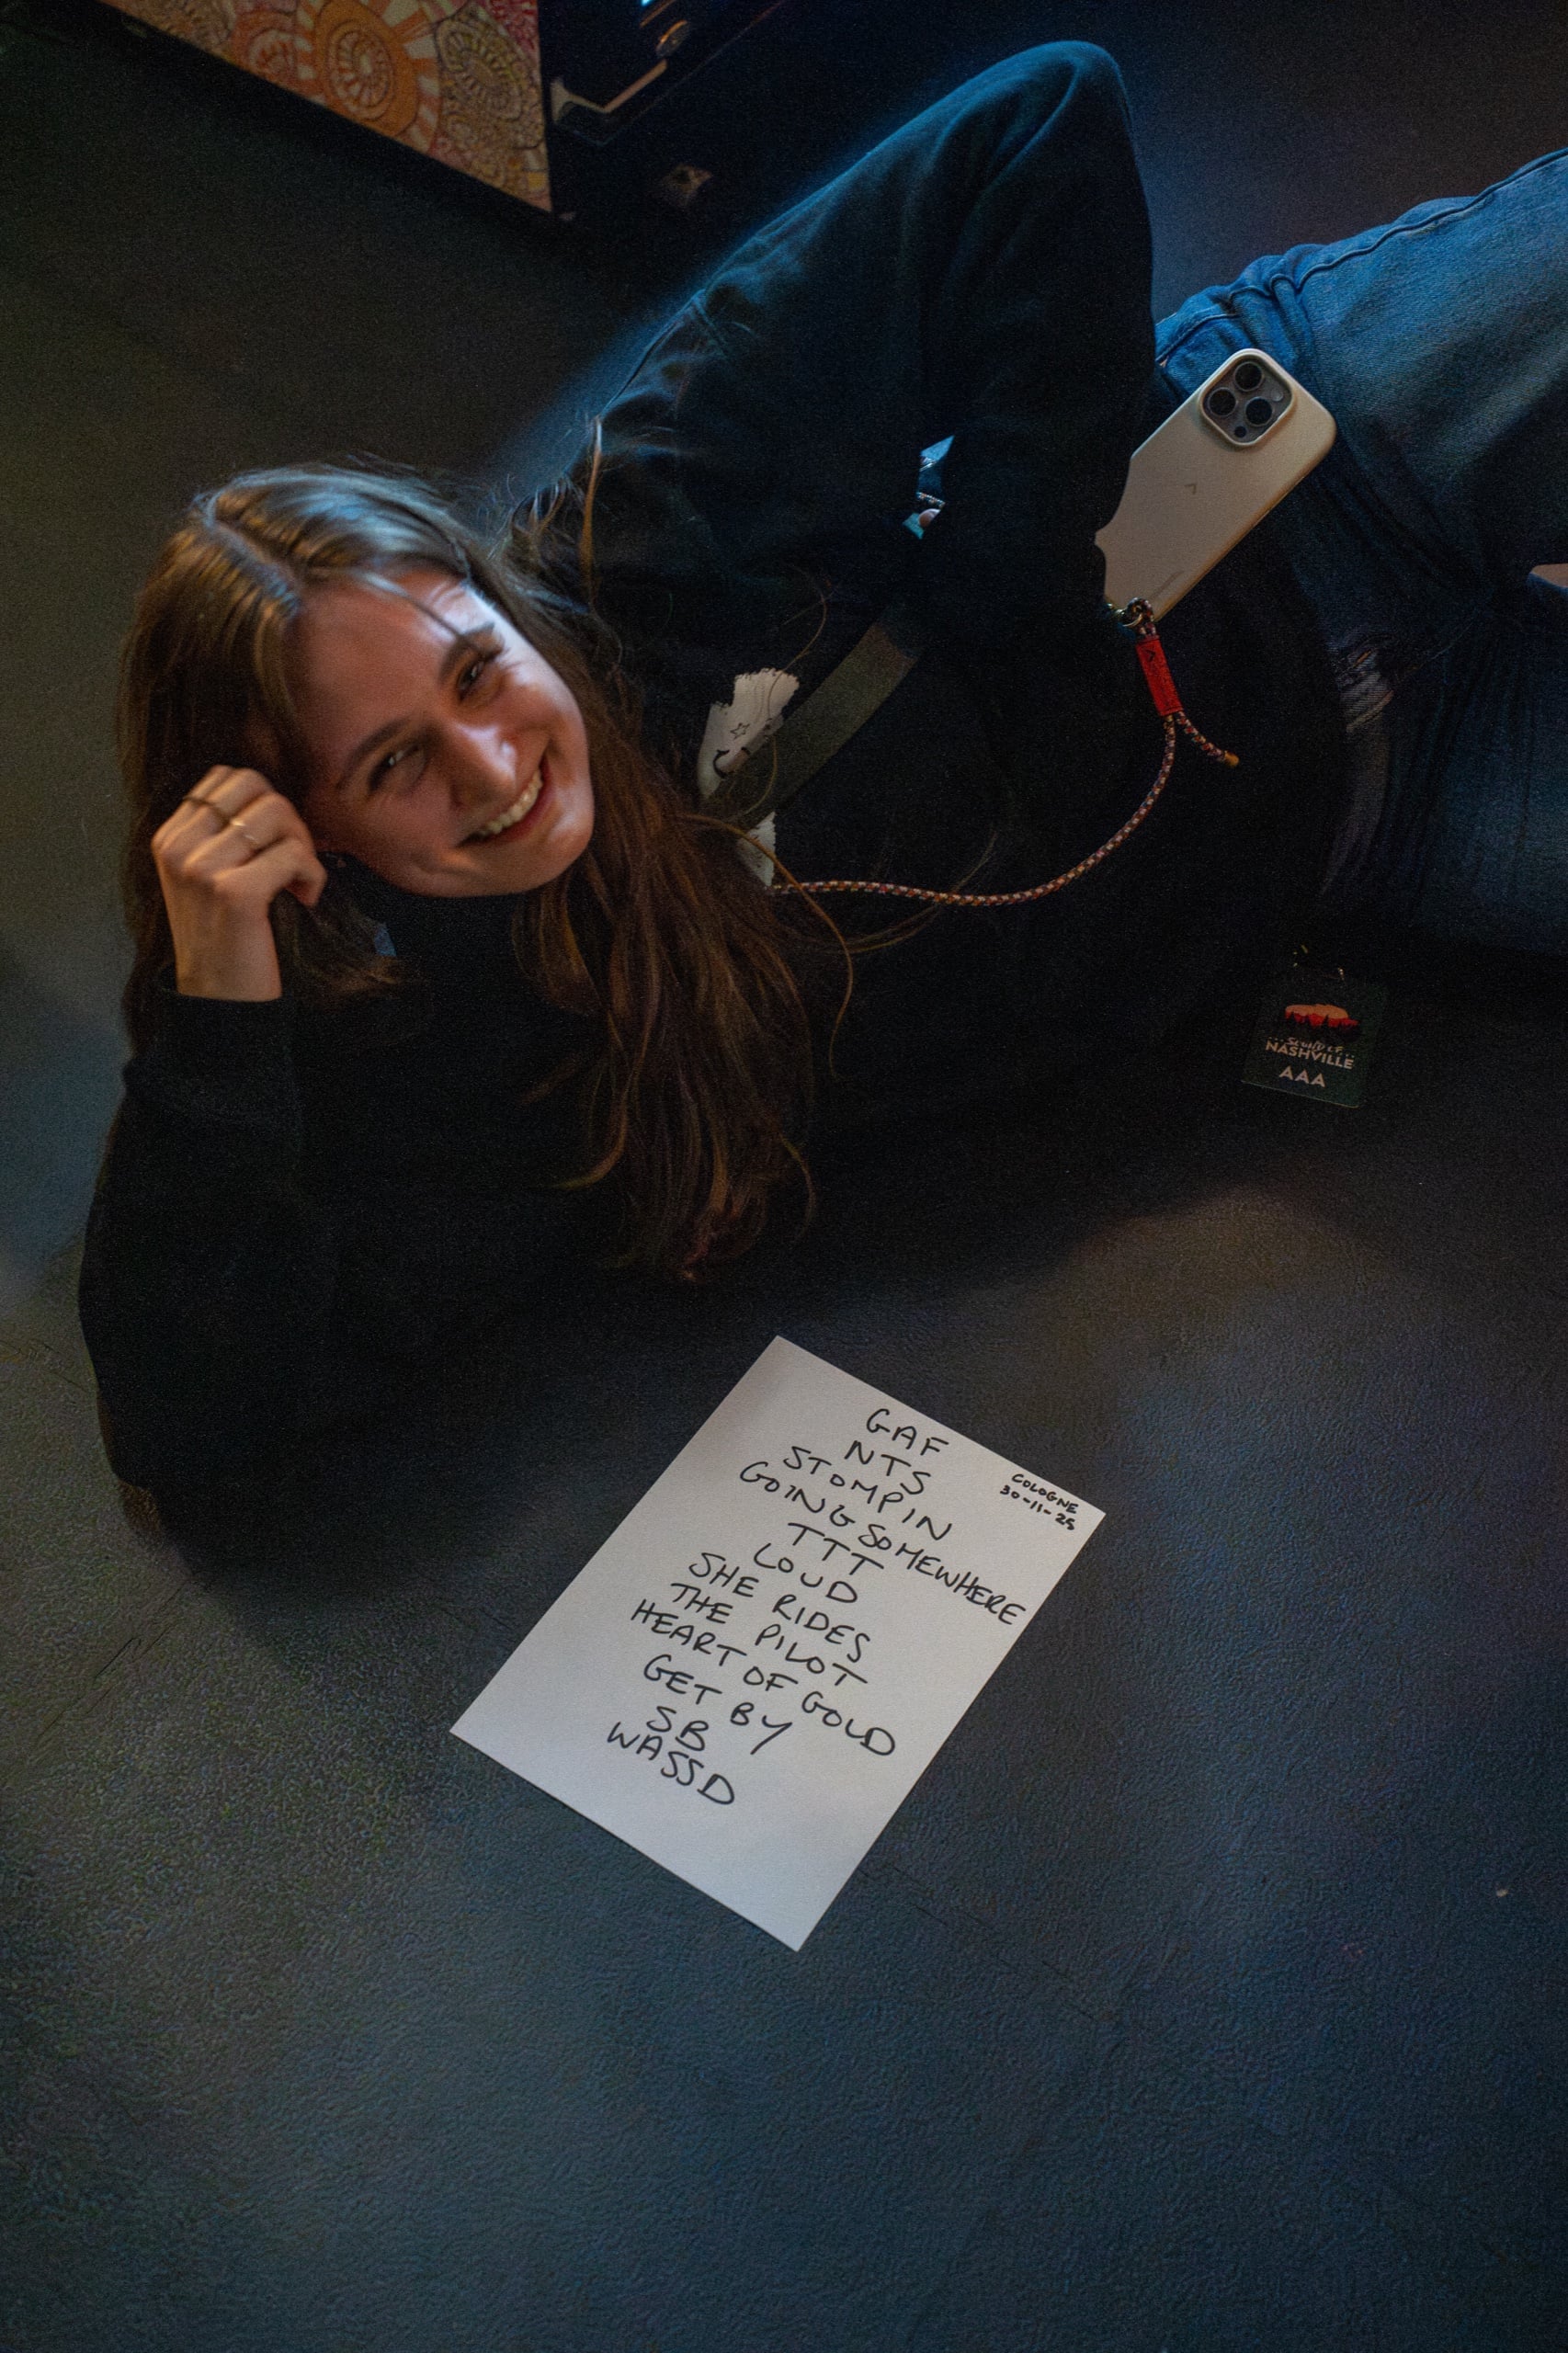 GAF
NTS
STOMPIN
GOING SOMEWHERE
TTT
LOUD
SHE RIDES
THE PILOT
HEART OF GOLD
GET BY
SB
WASSD
COLOGNE
30-11-25
SOUND OF
NASHVILLE
AAA